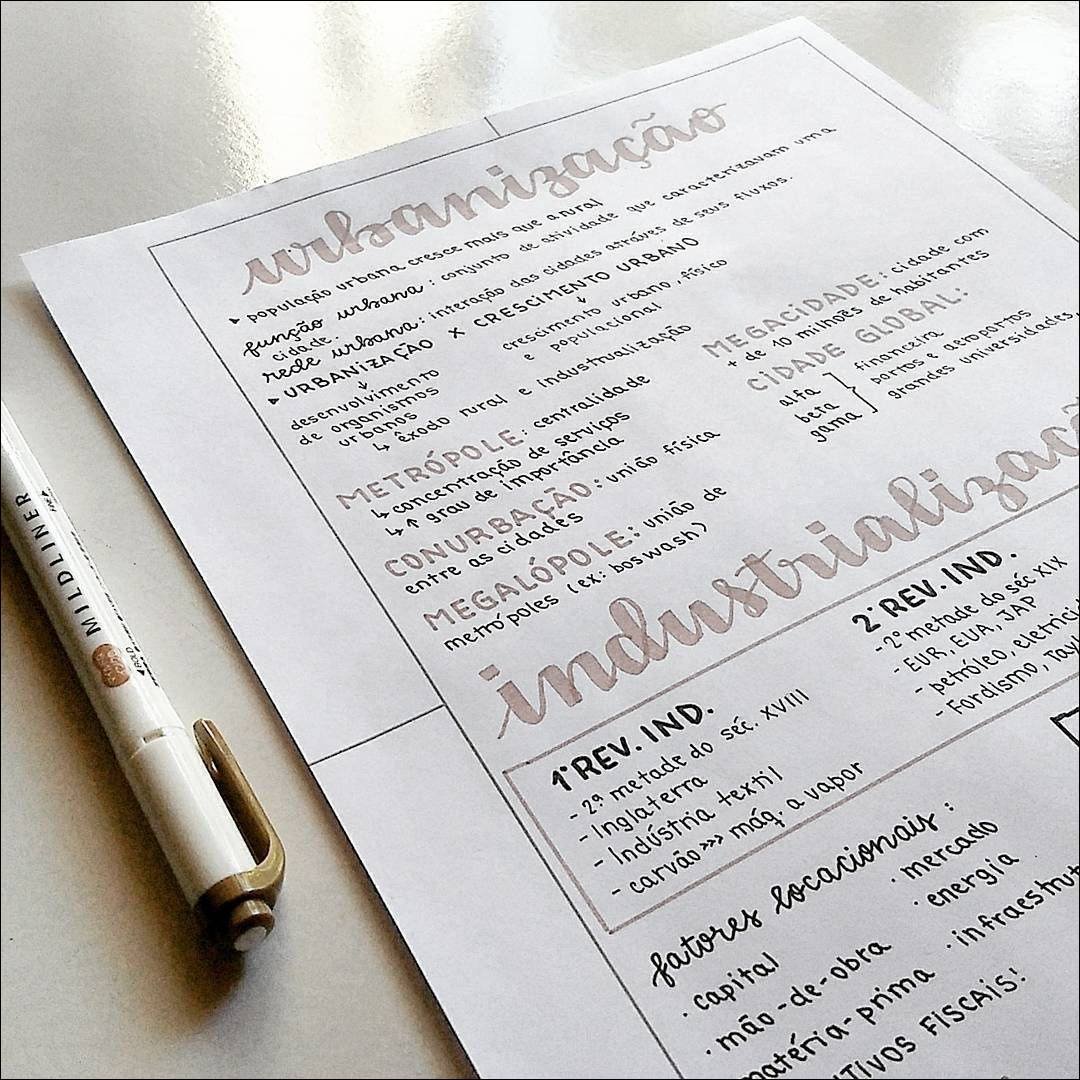 urbanização
▸ população urbana cresce mais que a rural
função urbana: conjunto de atividade que caracterizavam uma
cidade.
rede urbana: interação das cidades atráves de seus fluxos.
▸ URBANIZAÇÃO X CRESCIMENTO URBANO
↓
desenvolvimento
de organismos
urbanos
↓
crescimento urbano, físico
e populacional
↳ êxodo rural e industrualização
METRÓPOLE: centralidade
↳ concentração de serviços
↳ ↑ grau de importância
CONURBAÇÃO: união física
entre as cidades
MEGALÓPOLE: união de
metrópoles (ex: boswash)
MEGACIDADE: cidade com
+ de 10 milhões de habitantes
CIDADE GLOBAL:
alfa
beta
gama
financeira
portos e aeroportos
grandes universidades,
industrializaçã
1ª REV. IND.
- 2ª metade do séc. XVIII
- Inglaterra
- Indústria textil
- carvão >>> máq. a vapor
2ª REV. IND.
- 2ª metade do séc XIX
- EUR, EUA, JAP
- petróleo, eletricid
- Fordismo, Tayl
fatores locacionais:
· capital
· mão-de-obra
matéria-prima
· mercado
· energia
· infraestrut
TIVOS FISCAIS!
MILDLINER
BOLD